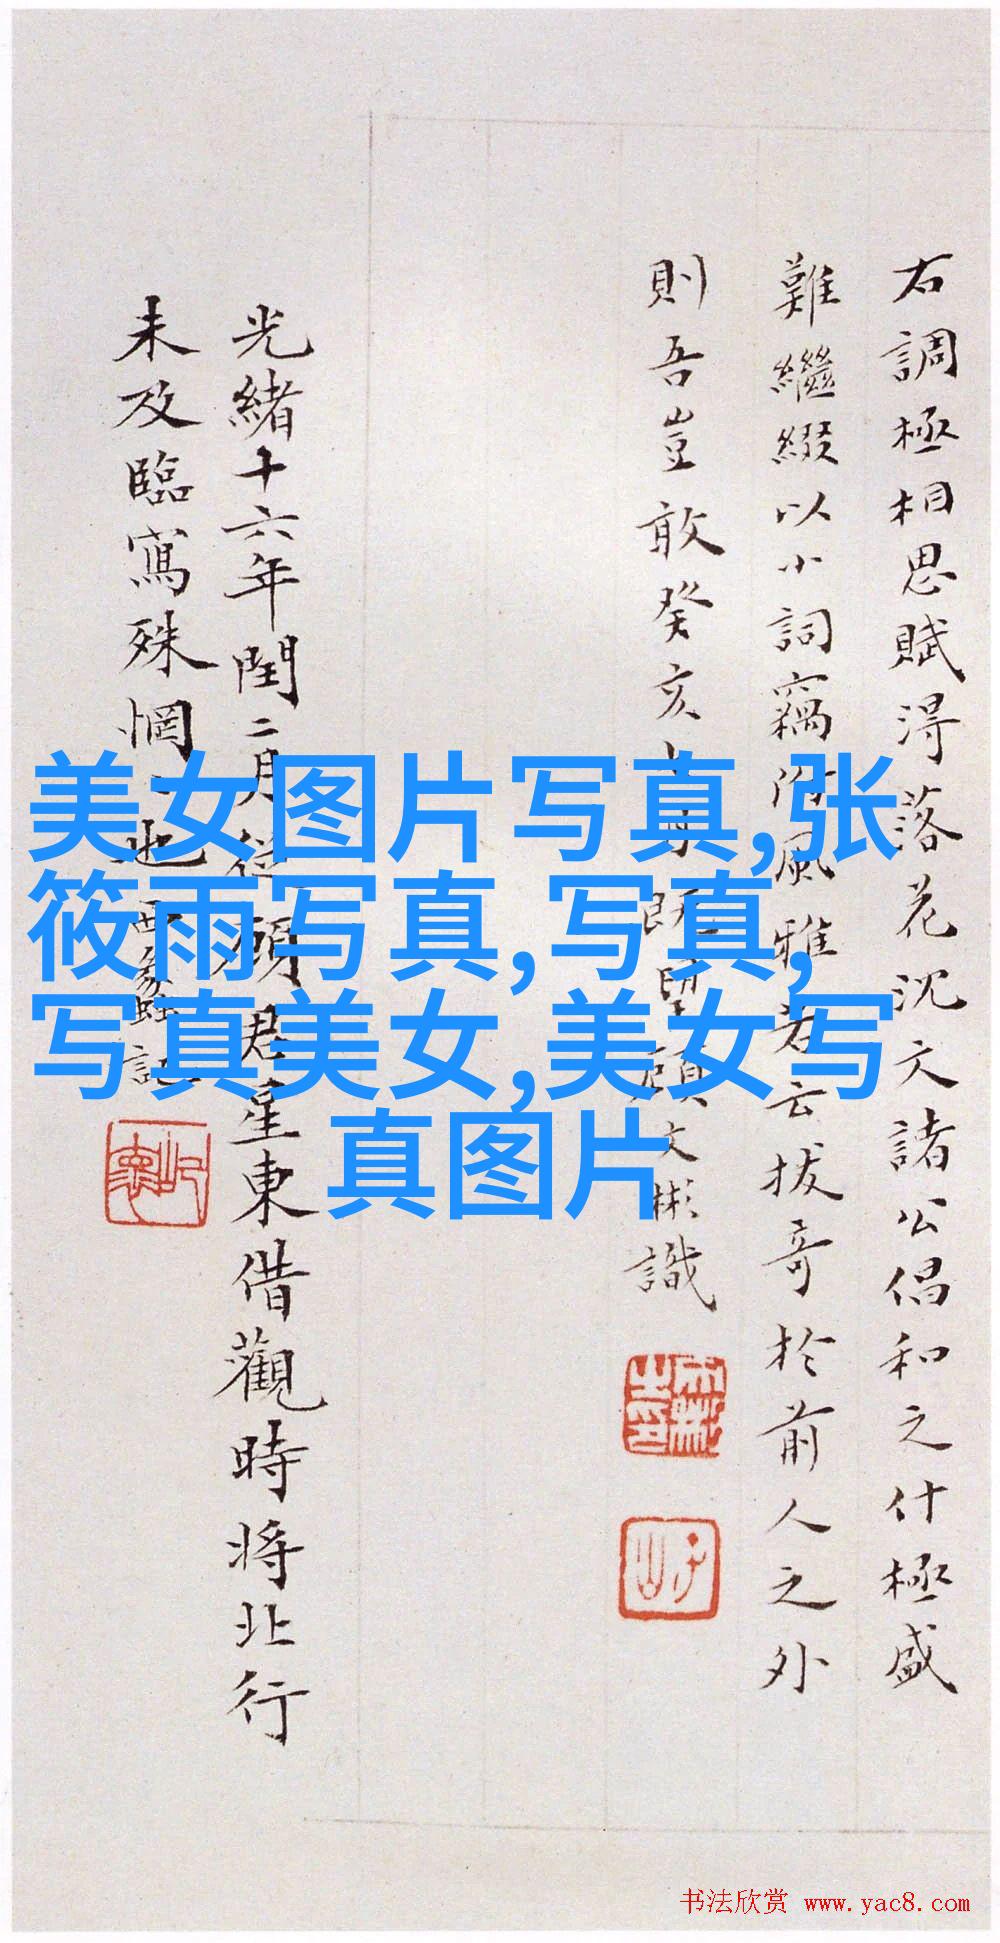 右調極相思賦得落花沈文諸公倡和之什極盛
難繼綴以小詞竊附風雅若云拔奇於前人之外
則吾豈敢癸亥既望顧文彬識
文彬之印
子山
光緒十六年閏二月從顧君星東借觀時將北行
未及臨寫殊惘也西蠡記
屺懷
美女图片写真,张
筱雨写真,写真,
写真美女,美女写
真图片
书法欣赏 www.yac8.com